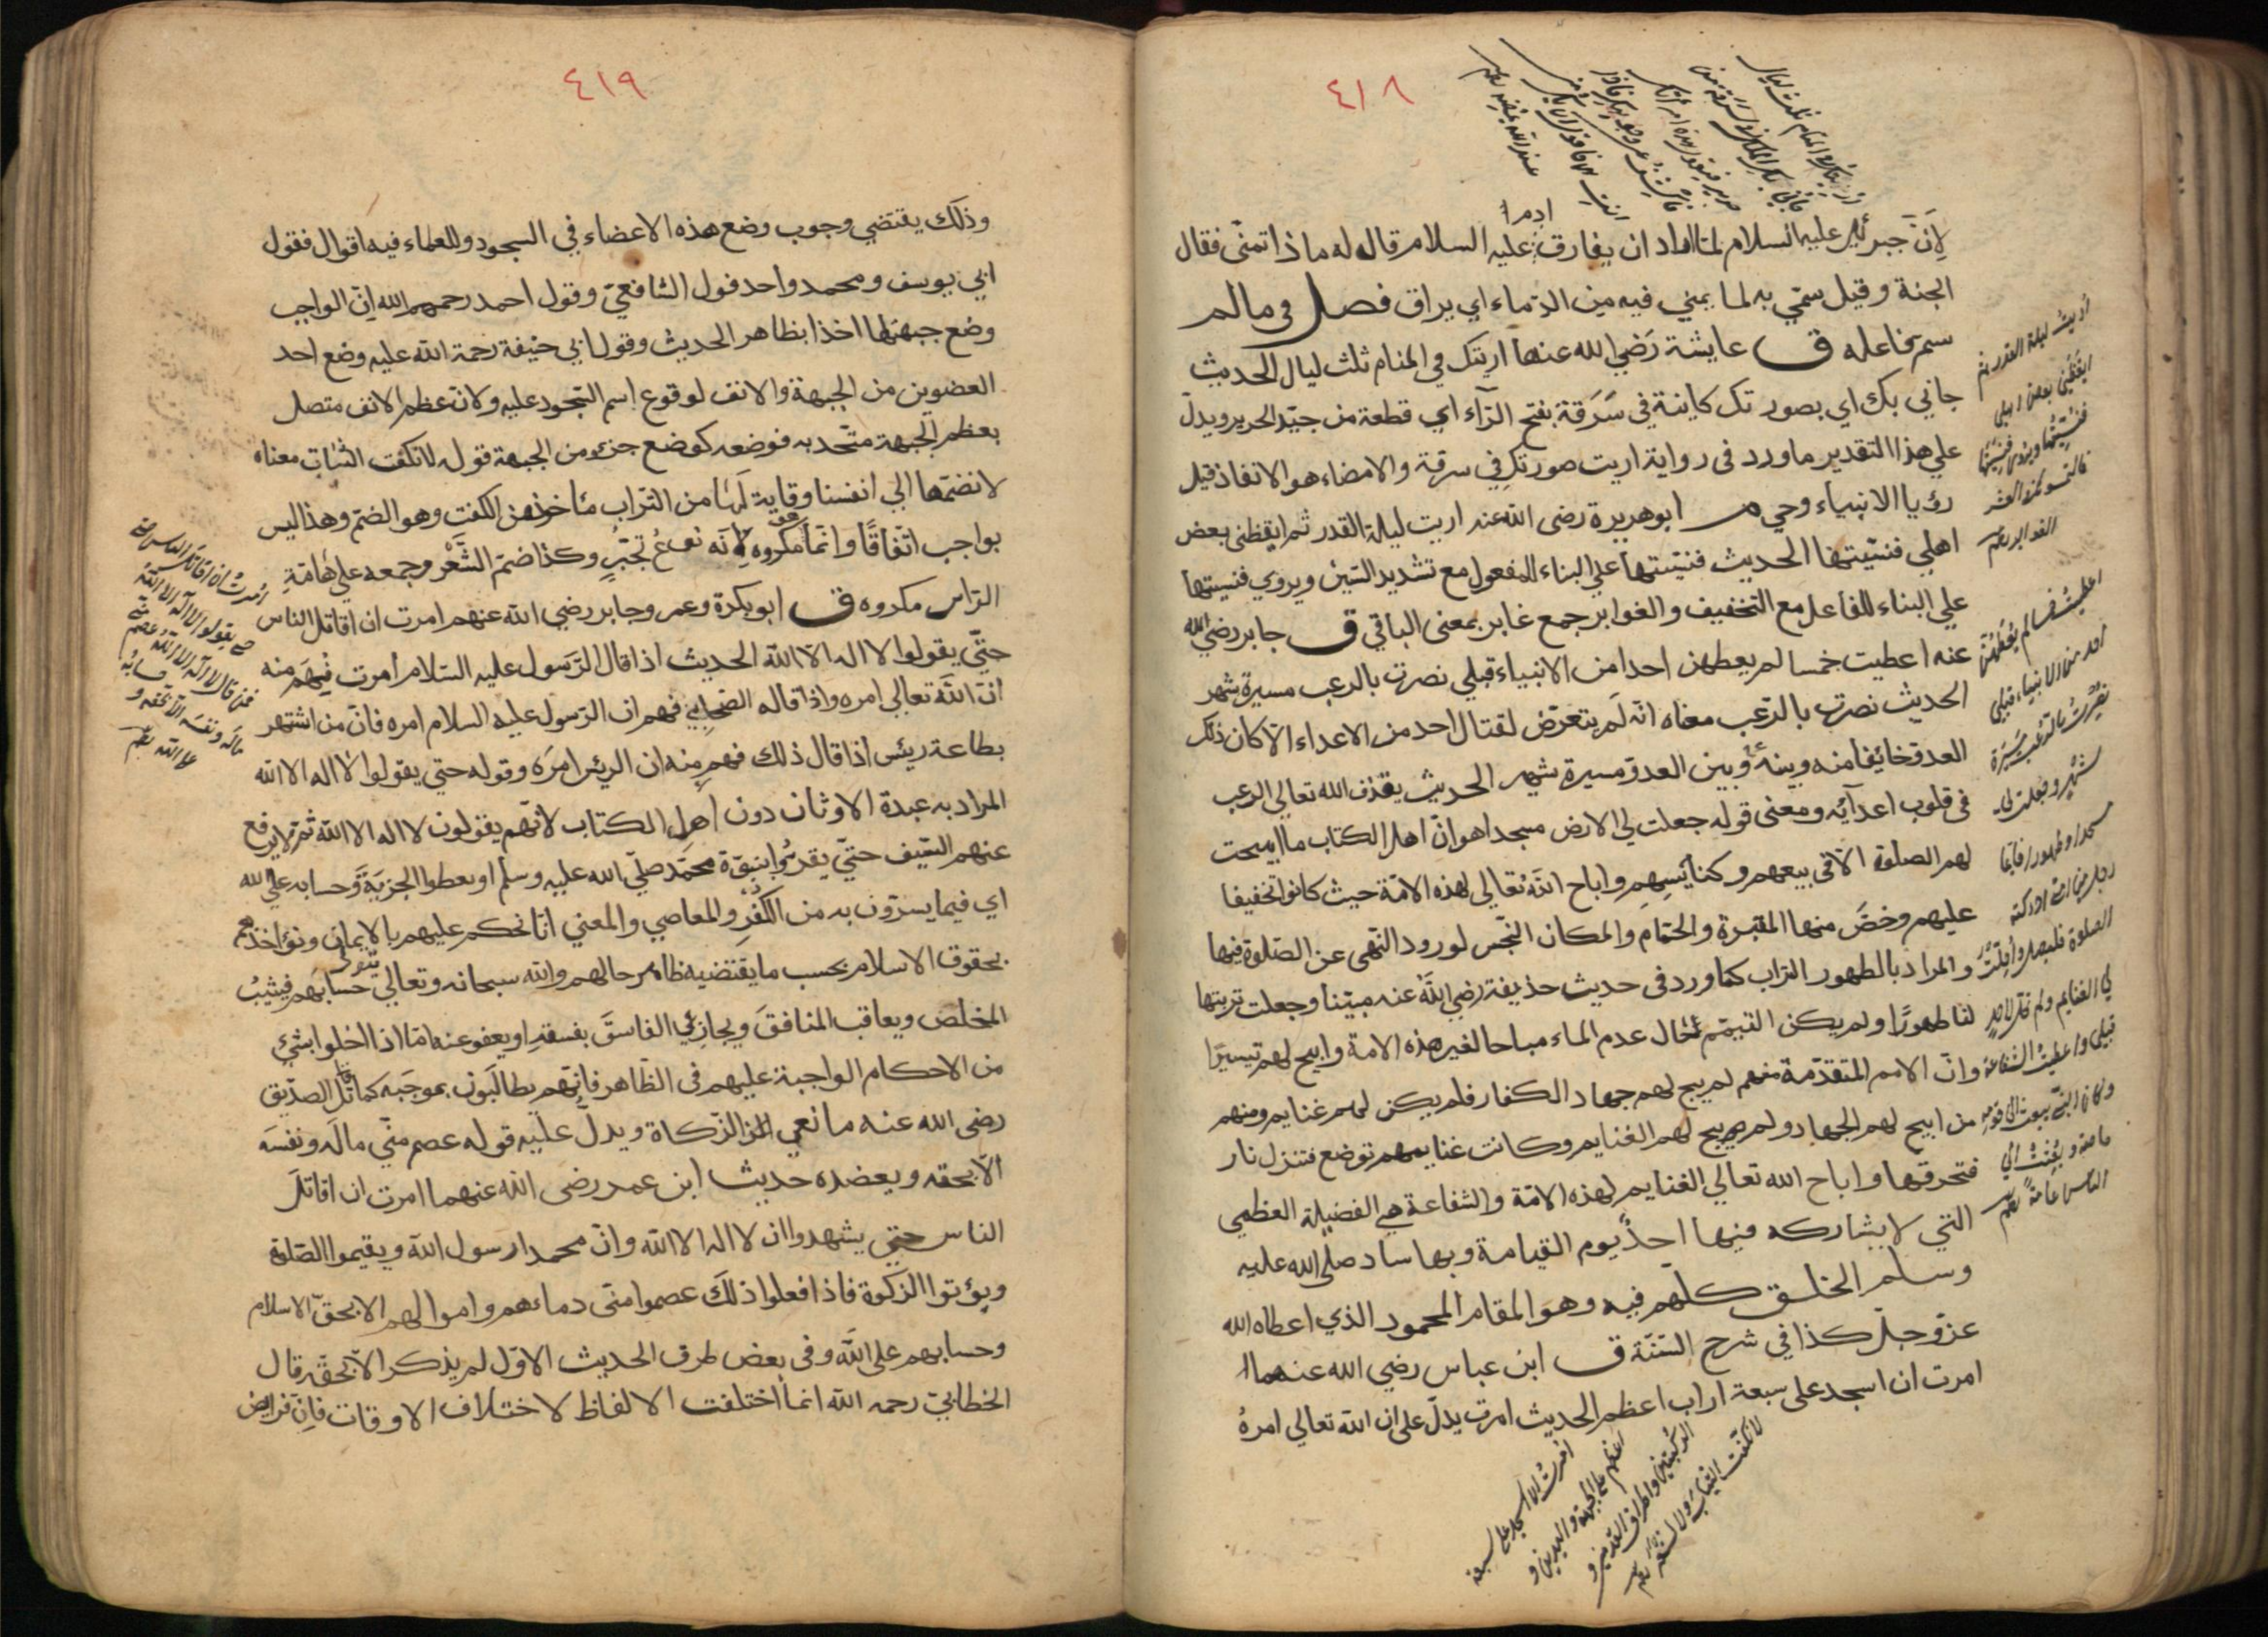 ٤١٨
لِأنّ جبرئيل عليه السلام لمّا اراد ان يفارق عليه السلام قال له ماذا تتمنّى فقال
ادم
الجنة وقيل سمّي به لما يمني فيه من الدّماء اي يراق فصل في مالم
سم فاعله ق عايشة رَضي الله عنها اريتك في المنام ثلث ليال الحديث
جاني بك اي بصورتك كاينة في سَرَقة بفتح الرّاء اي قطعة من جيّد الحرير ويدلّ
علي هذا التقدير ماورد في رواية اريت صورتك في سرقة والامضاء هو الانفاذ قيل
رؤيا الانبياء وحي م ابوهريرة رضى الله عنه اريت ليلة القدر ثم ايقظني بعض
اهلي فنسّيتها الحديث فنسّيتها علي البناء للمفعول مع تشديد السّين ويروي فنسيتها
علي البناء للفاعل مع التخفيف والغوابر جمع غابر بمعنى الباقي ق جابر رضي الله
عنه اعطيت خمسا لم يعطهن احد من الانبياء قبلي نصرت بالرعب مسيرة شهر
الحديث نصرت بالرّعب معناه انّه لَم يتعرّض لقتال احد من الاعداء الّا كان ذلك
العدوّ خائفا منه وبينه وبين العدوّ مسيرة شهر الحديث يقذف الله تعالي الرعب
في قلوب اعدآئه ومعنى قوله جعلت لي الارض مسجدا هو انّ اهل الكتاب ما ابيحت
لهم الصلوة الّا في بيعهم وكنآئسِهِم واباح اللّه تعالي لهذه الامّة حيث كانوا تخفيفا
عليهم وخصّ منها المقبرة والحمّام والمكان النّجس لورود النّهى عن الصّلوة فيها
والمراد بالطهور التراب كما ورد في حديث حذيفة رضي اللّه عنه مبيّنا وجعلت تربتها
لنا طهورًا ولم يكن التيمّم لحال عدم الماء مباحا لغير هذه الامة وابيح لهم تيسيرًا
وانّ الامم المتقدّمة منهم لم يبح لهم جهاد الكفار فلم يكن لهم غنايم ومنهم
من ابيح لهم الجهاد ولم يبح لهم الغنايم وكانت غنايمهم توضع فتنزل نار
فتحرقها واباح الله تعالي الغنايم لهذه الامّة والشفاعة هي الفضيلة العظمي
التي لا يشاركه فيها احدٌ يوم القيامة وبها ساد صلّى الله عليه
وسلم الخلق كلّهم فيه وهو المقام المحمود الذي اعطاه الله
عزّ وجلّ كذا في شرح السّنّة ق ابن عباس رضي الله عنهما
امرت ان اسجد على سبعة اراب اعظم الحديث امرت يدلّ على ان الله تعالي امرهُ
أريت ليلة القدر ثم
ايقظني بعض اهلي
فنسيتها
فالتمسوها في العشر
الغوابر
اعطيت خمسا لم يعطهنّ
احد من الانبياء قبلي
نصرت بالرعب مسيرة
شهر وجعلت لي
مسجدا وطهورا فايما
رجل من امتي ادركته
الصلوة فليصل واحلت
لي الغنايم ولم تحل لاحد
قبلي واعطيت الشفاعة
وكان النبي يبعث الى قومه
خاصة وبعثت الى
الناس عامة
امرت ان اسجد على سبعة
اعظم على الجبهة واليدين و
الركبتين واطراف القدمين و
لا نكفت الثياب ولا الشعر
٤١٩
وذلك يقتضي وجوب وضع هذه الاعضاء في السجود وللعلماء فيه اقوال فقول
ابي يوسف ومحمد واحد قول الشافعيّ وقول احمد رحمهم الله انّ الواجب
وضع جبهتها اخذا بظاهر الحديث وقول ابي حنيفة رحمة الله عليه وضع احد
العضوين من الجبهة والانف لوقوع اسم السّجود عليه ولانّ عظم الانف متصل
بعظم الجبهة متّحد به فوضعه كوضع جزء من الجبهة قوله لا نكفت الثياب معناه
لا نضمّها الي انفسنا وقاية لَها من التّراب مأخوذ من الكفت وهو الضمّ وهذا ليس
بواجب اتّفاقًا وانّما هو مكروه لِأنّه نوعُ تجبّرٍ وكذا ضمّ الشَّعْر وجمعه علي هَامَةِ
الرّاس مكروه ق ابو بكرة وعمر وجابر رضي الله عنهم امرت ان اقاتل الناس
حتّي يقولوا لا اله الّا اللّه الحديث اذا قال الرّسول عليه السّلام أمرت فُهِمَ منه
انّ اللّه تعالي امره واذا قاله الصّحابي فهم ان الرّسول عليه السلام امره فانّ من اشتهر
بطاعة ريئس اذا قال ذلك فهم منه ان الريئس امَرَه وقوله حتي يقولوا لا اله الا الله
المراد به عبدة الاوثان دون اهل الكتاب لانّهم يقولون لا اله الا الله ثمّ لا يرفع
عنهم السّيف حتّي يقرّوا بنبوّة محمّد صلّي الله عليه وسلّم او يعطوا الجزية وحسابه على الله
اي فيما يسرّون به من الكُفْرِ والمعاصي والمعني انّا نحكم عليهم بالايمان ونؤاخذهم
بحقوق الاسلام بحسب ما يقتضيه ظاهر حالهم والله سبحانه وتعالي يتولى حسابهم فيثيبُ
المخلص ويعاقب المنافقَ ويجازي الفاسقَ بفسقهِ او يعفو عنه امّا اذا اخلوا بشئ
من الاحكام الواجبة عليهم في الظّاهر فانّهم يطالَبون بموجَبه كما قاتل الصدّيق
رضى الله عنه مانعي الزّكاة ويدلّ عليه قوله عصم منّي مالَه ونفسَه
الّا بحقه ويعضده حديث ابن عمر رضى الله عنهما امرت ان اقاتل
الناس حتي يشهدوا ان لا اله الا الله وانّ محمدا رسول الله ويقيموا الصّلوة
ويؤتوا الزكوة فاذا فعلوا ذلك عصموا منّي دماءهم واموالهم الا بحقّ الاسلام
وحسابهم على اللّه وفي بعض طرق الحديث الاوّل لم يذكر الّا بحقّه قال
الخطابيّ رحمه الله انما اختلفت الالفاظ لاختلاف الاوقات فانّ فرايض
امرت ان اقاتل الناس حتى
يقولوا لا اله الا الله
فمن قال لا اله الا الله عصم مني
ماله ونفسه الا بحقه و
حسابه
على الله